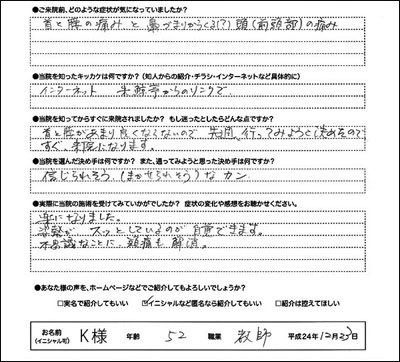 ●ご来院前、どのような症状が気になっていましたか?
首と腰の痛み と 鼻づまりからくる(?)頭(前頭部)の痛み
●当院を知ったキッカケは何ですか?(知人からの紹介・チラシ・インターネットなど具体的に)
インターネット からのリンクで
●当院を知ってからすぐに来院されましたか? もし迷ったとしたらどんな点ですか?
首と腰があまり良くならないので 先ず、行ってみようと決めたので
すぐ、来院になります。
●当院を選んだ決め手は何ですか? また、通ってみようと思った決め手は何ですか?
信じられそう、(まかせられそう)な カン
●実際に当院の施術を受けてみていかがでしたか? 症状の変化や感想をお聴かせください。
楽になりました。
姿勢が スッとしているのが 自覚できます。
不思議なことに、頭痛も 解消。
●あなた様の声を、ホームページなどでご紹介してもよろしいでしょうか?
□実名で紹介してもいい ☑イニシャルなど匿名なら紹介してもいい □紹介は控えてほしい
お名前(イニシャル可) K様 年齢 52 職業 教師 平成24年12月25日